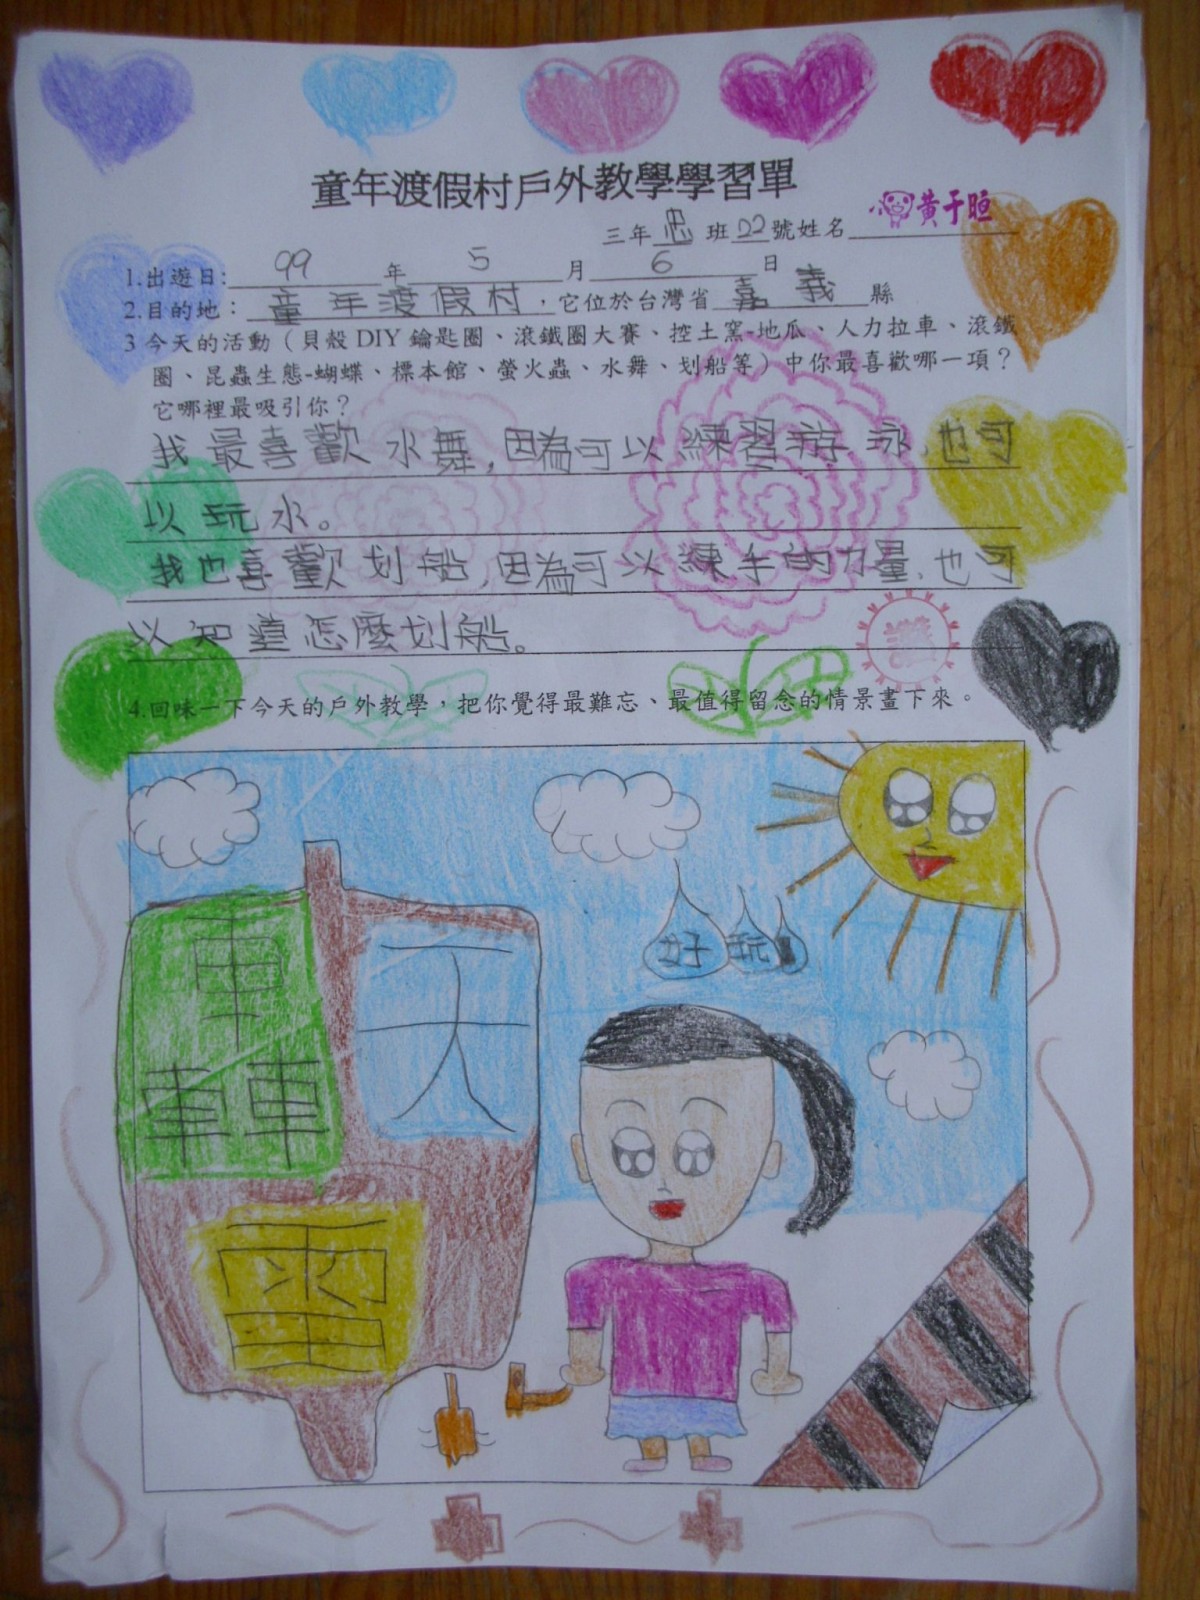 童年渡假村戶外教學學習單
三年忠班22號姓名 黃于晅
1.出遊日: 99 年 5 月 6 日
2.目的地：童年渡假村，它位於台灣省嘉義縣
3 今天的活動（貝殼 DIY 鑰匙圈、滾鐵圈大賽、控土窯-地瓜、人力拉車、滾鐵
圈、昆蟲生態-蝴蝶、標本館、螢火蟲、水舞、划船等）中你最喜歡哪一項？
它哪裡最吸引你？
我最喜歡水舞,因為可以練習游泳,也可
以玩水。
我也喜歡划船,因為可以練手的力量,也可
以知道怎麼划船。
讚
4.回味一下今天的戶外教學，把你覺得最難忘、最值得留念的情景畫下來。
好玩
轟
天
雷